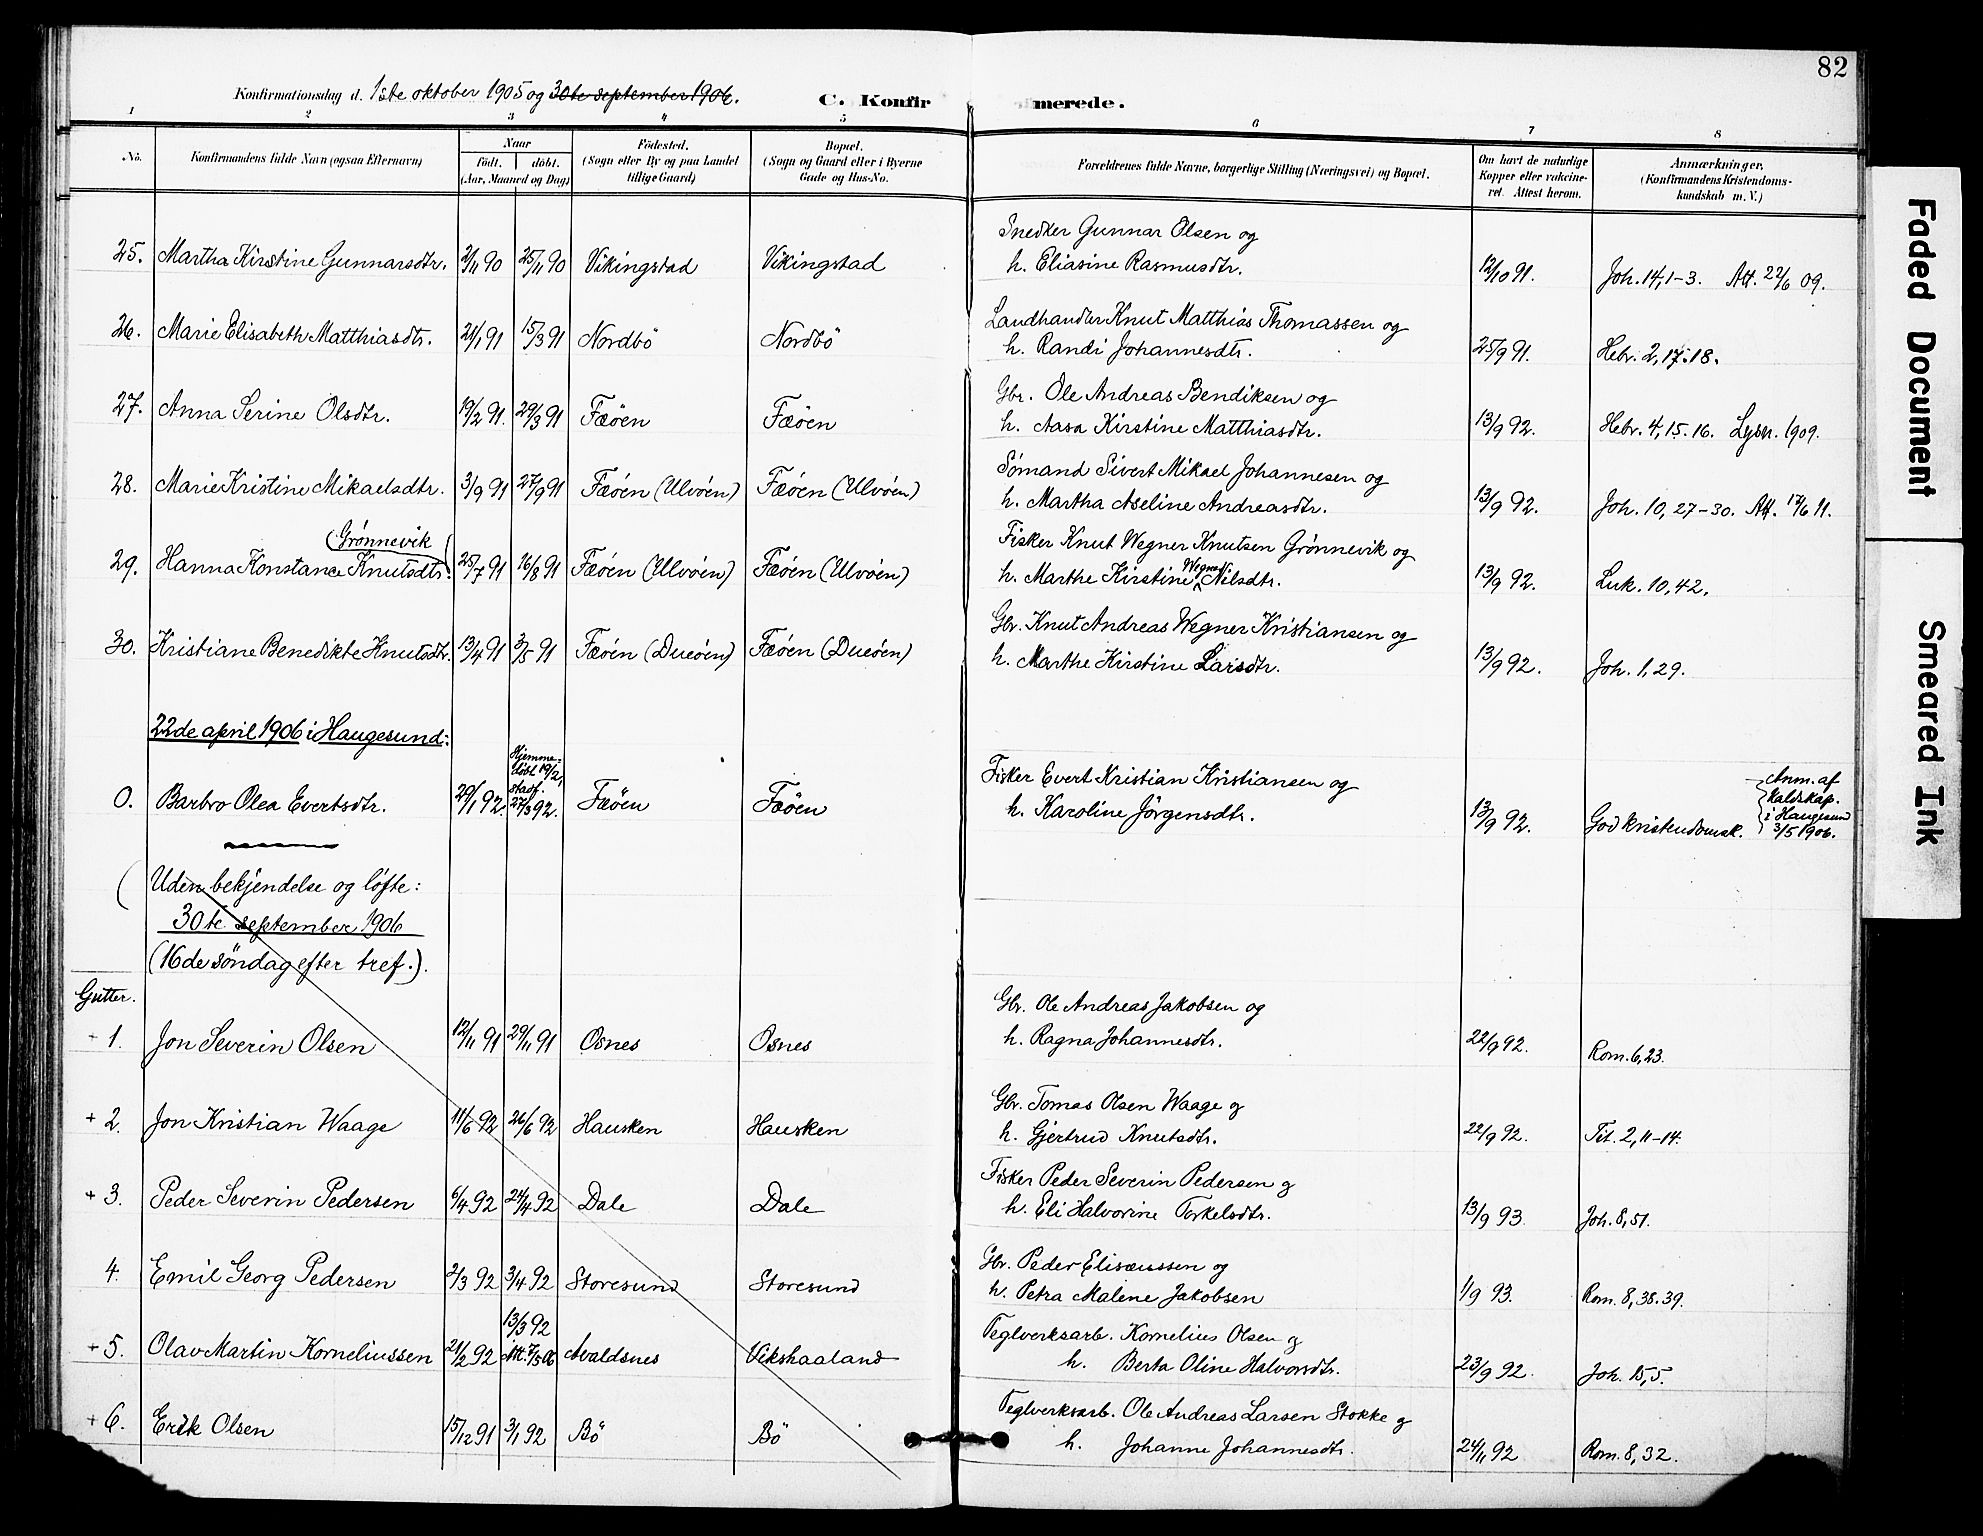 82
Konfirmationsdag d. 1ste oktober 1905 og 30te september 1906.
C. Konfirmerede.
1 2 3 4 5 6 7 8
No. Konfirmandens fulde Navn (ogsaa Efternavn) Naar født. døbt. (Aar, Maaned og Dag) Födested. (Sogn eller By og paa Landet tillige Gaard) Bopæl. (Sogn og Gaard eller i Byerne Gade og Hus-No. Forældrenes fulde Navne, borgerlige Stilling (Næringsvei) og Bopæl. Om havt de naturlige Kopper eller vakcineret. Attest herom. Anmærkninger. (Konfirmandens Kristendomskundskab m. V.)
Snedker Gunnar Olsen og
25. Martha Kirstine Gunnarsdtr. 2/11 90 25/11 90 Vikingstad Vikingstad h. Eliasine Rasmusdtr. 12/10 91. Joh. 14, 1-3. Att. 22/6 09.
Landhandler Knut Matthias Thomassen og
26. Marie Elisabeth Matthiasdtr. 21/1 91 15/3 91 Nordbö Nordbö h. Randi Johannesdtr. 25/9 91. Hebr. 2, 17.18.
Gbr. Ole Andreas Bendiksen og
27. Anna Serine Olsdtr. 19/2 91. 29/3 91 Fæöen Fæöen h. Aasa Kirstine Matthiasdtr. 13/9 92. Hebr. 4, 15.16. Lysn. 1909.
Sömand Sivert Mikael Johannesen og
28. Marie Kristine Mikaelsdtr. 3/9 91 27/9 91 Fæöen (Ulvöen) Fæöen (Ulvöen) h. Martha Aseline Andreasdtr. 13/9 92. Joh. 10, 27-30. Att. 17/6 11.
(Grønnevik Fisker Knut Wegner Knutsen Grønnevik og
29. Hanna Konstance Knutsdtr. 25/7 91 16/8 91 Fæöen (Ulvöen) Fæöen (Ulvöen) h. Marthe Kirstine Wegner Nilsdtr. 13/9 92. Luk. 10, 42.
Gbr. Knut Andreas Wegner Kristiansen og
30. Kristiane Benedikte Knutsdtr. 13/4 91 3/5 91 Fæöen (Dueöen) Fæöen (Dueöen) h. Marthe Kirstine Larsdtr. 13/9 92. Joh. 1, 29.
22de april 1906 i Haugesund:
Fisker Evert Kristian Kristiansen og
0. Barbro Olea Evertsdtr. 29/1 92. Hjemmedöbt 19/2, stadf. 27/3 92. Fæöen Fæöen h. Karoline Jörgensdtr. 13/9 92. God kristendomsk. Anm. af kaldskap. i Haugesund 3/5 1906.
(Uden bekjendelse og løfte:
30te september 1906
(16de söndag efter tref.).
Gutter.
Gbr. Ole Andreas Jakobsen og
- 1. Jon Severin Olsen 12/11 91 29/11 91 Osnes Osnes h. Ragna Johannesdtr. 22/9 92. Rom. 6, 23.
Gbr. Tomas Olsen Waage og
+ 2. Jon Kristian Waage 11/6 92 26/6 92 Hausken Hausken h. Gjertrud Knutsdtr. 22/9 92. Tit. 2, 11-14.
Fisker Peder Severin Pedersen og
+ 3. Peder Severin Pedersen 6/4 92 24/4 92 Dale Dale h. Eli Halvorine Torkelsdtr. 13/9 93. Joh. 8, 51.
Gbr. Peder Eliseussen og
4. Emil Georg Pedersen 2/3 92 3/4 92 Storesund Storesund h. Petra Malene Jakobsen 1/9 93. Rom. 8, 38.39.
Teglverksarb. Kornelius Olsen og
+ 5. Olav Martin Korneliussen 21/2 92 13/3 92 Att. 7/5 06 Avaldsnes Vikshaaland h. Berta Oline Halvorsdtr. 23/9 92. Joh. 15, 5.
Teglverksarb. Ole Andreas Larsen Stokke og
+ 6. Erik Olsen 15/12 91 3/1 92 Bö Bö h. Johanne Johannesdtr. 24/11 92 Rom. 8, 32.
Faded Document
Smeared Ink